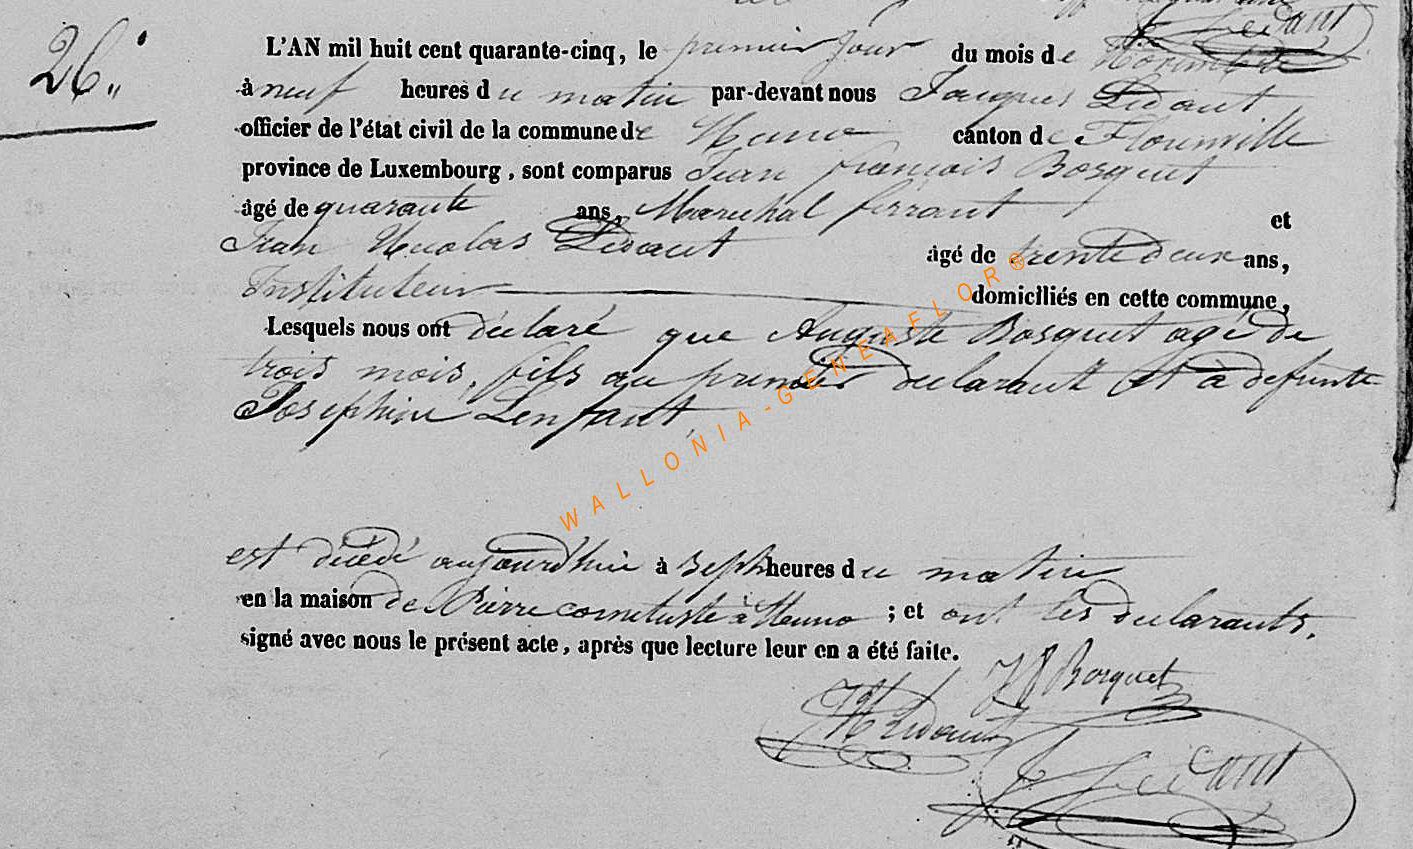 26.
L'AN mil huit cent quarante-cinq, le premier jour du mois de Novembre
à neuf heures du matin par-devant nous Jacques Lédant
officier de l'état civil de la commune de canton de Florenville
province de Luxembourg, sont comparus Jean françois Bosquet
âgé de quarante ans, Maréchal ferrant et
Jean Nicolas Lédant âgé de trente deux ans,
Instituteur domiciliés en cette commune,
Lesquels nous ont déclaré que Auguste Bosquet agé de
trois mois, fils au premier déclarant et à défunte
Joséphine Lenfant,
WALLONIA-GENEAFLOR®
est décédé aujourd'hui à sept heures du matin
en la maison de Pierre à ; et ont les déclarants.
signé avec nous le présent acte, après que lecture leur en a été faite.
JF Bosquet
JN Lédant